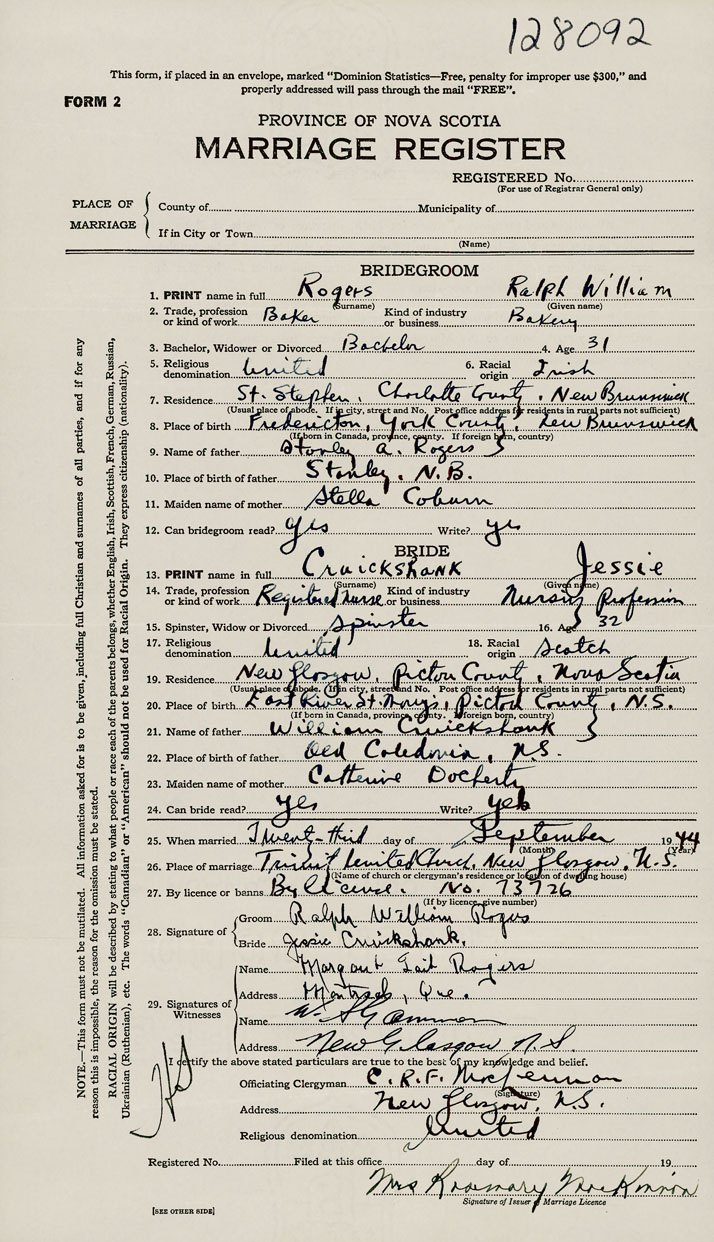 128092
This form, if placed in an envelope, marked “Dominion Statistics—Free, penalty for improper use $300,” and
properly addressed will pass through the mail “FREE”.
FORM 2
PROVINCE OF NOVA SCOTIA
MARRIAGE REGISTER
REGISTERED No.
(For use of Registrar General only)
PLACE OF MARRIAGE
County of Municipality of
If in City or Town
(Name)
BRIDEGROOM
1. PRINT name in full Rogers Ralph William
(Surname) (Given name)
2. Trade, profession or kind of work Baker Kind of industry or business Bakery
3. Bachelor, Widower or Divorced Bachelor 4. Age 31
5. Religious denomination United 6. Racial origin Irish
7. Residence St. Stephen, Charlotte County, New Brunswick
(Usual place of abode. If in city, street and No. Post office address for residents in rural parts not sufficient)
8. Place of birth Fredericton, York County, New Brunswick
(If born in Canada, province, county. If foreign born, country)
9. Name of father Stanley A. Rogers
10. Place of birth of father Stanley, N.B.
11. Maiden name of mother Stella Coburn
12. Can bridegroom read? yes Write? yes
BRIDE
13. PRINT name in full Cruickshank Jessie
(Surname) (Given name)
14. Trade, profession or kind of work Registered nurse Kind of industry or business Nursing Profession
15. Spinster, Widow or Divorced Spinster 16. Age 32
17. Religious denomination United 18. Racial origin Scotch
19. Residence New Glasgow, Pictou County, Nova Scotia
(Usual place of abode. If in city, street and No. Post office address for residents in rural parts not sufficient)
20. Place of birth East River St. Marys, Pictou County, N.S.
(If born in Canada, province, county. If foreign born, country)
21. Name of father William Cruickshank
22. Place of birth of father Old Caledonia, N.S.
23. Maiden name of mother Catherine Docherty
24. Can bride read? yes Write? yes
25. When married Twenty-third day of September 1944
(Month) (Year)
26. Place of marriage Trinity United Church, New Glasgow, N.S.
(Name of church or clergyman's residence or location of dwelling house)
27. By licence or banns By license. No. 73726
(If by licence, give number)
28. Signature of
Groom Ralph William Rogers
Bride Jessie Cruickshank.
29. Signatures of Witnesses
Name Margaret Rogers
Address Montreal, Que.
Name W.
Address New Glasgow N.S.
I certify the above stated particulars are true to the best of my knowledge and belief.
Officiating Clergyman C. R. F. MacLennan
(Signature)
Address New Glasgow, N.S.
Religious denomination United
Registered No. Filed at this office day of 19
Mrs Rosemary MacKinnon
Signature of Issuer of Marriage Licence
[SEE OTHER SIDE]
NOTE.—This form must not be mutilated. All information asked for is to be given, including full Christian and surnames of all parties, and if for any
reason this is impossible, the reason for the omission must be stated.
RACIAL ORIGIN will be described by stating to what people or race each of the parents belongs, whether English, Irish, Scottish, French, German, Russian,
Ukrainian (Ruthenian), etc. The words “Canadian” or “American” should not be used for Racial Origin. They express citizenship (nationality).